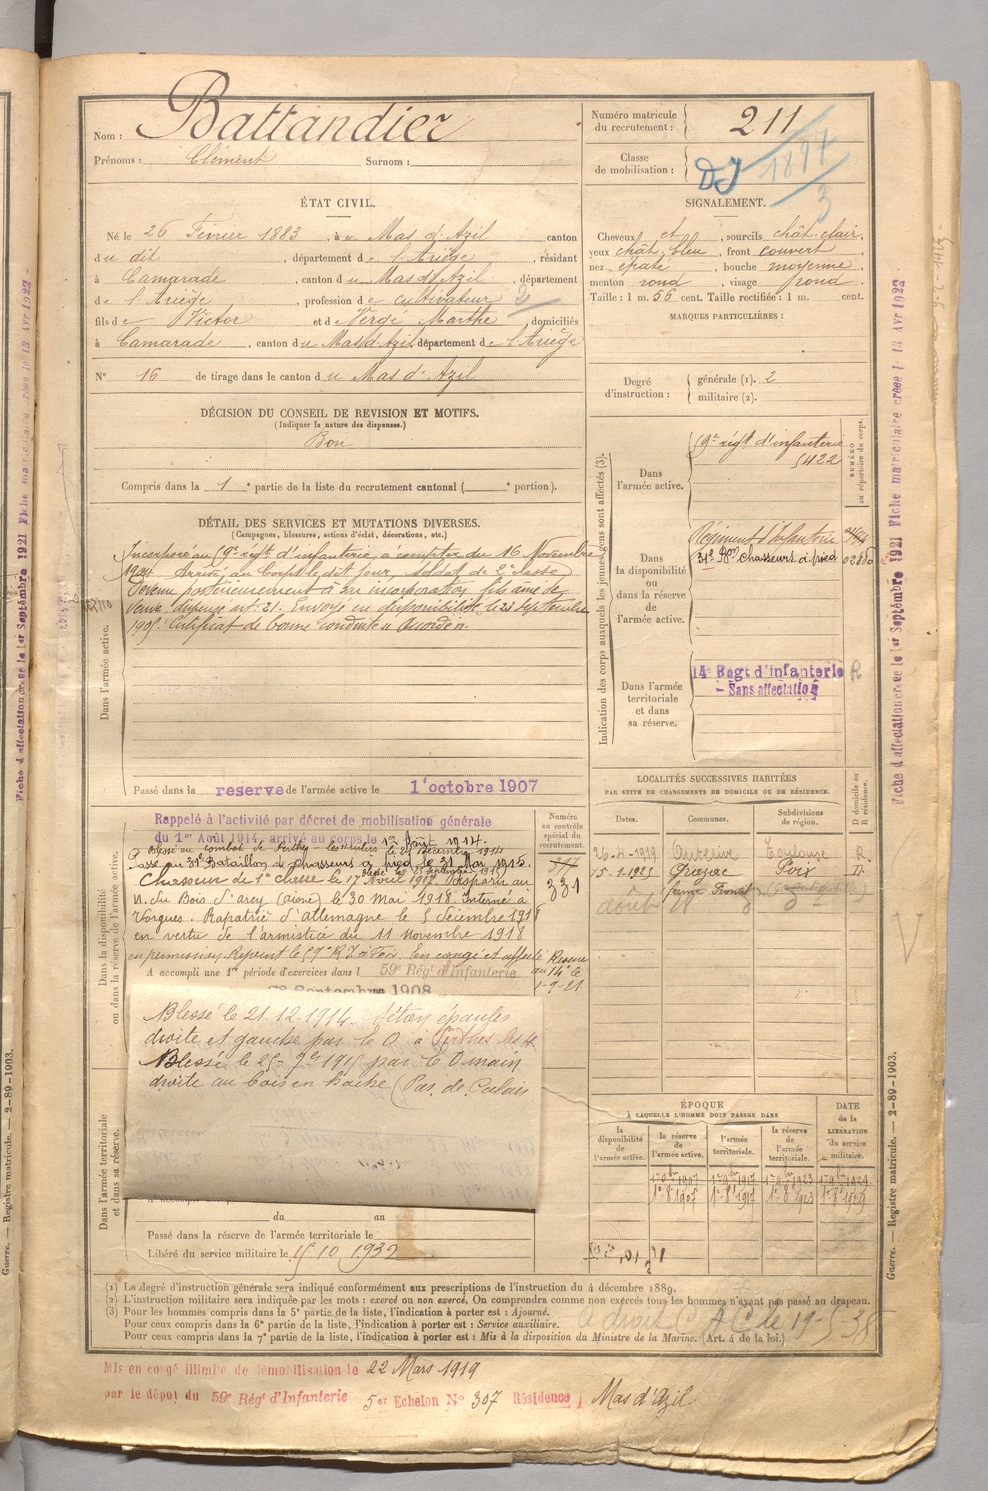 Nom : Battandier
Prénoms : Clément Surnom :
Numéro matricule du recrutement : 211
Classe de mobilisation :
ÉTAT CIVIL.
Né le 26 Février 1883, à u Mas d'Azil canton
du dit, département de l'Ariège, résidant
à Camarade, canton du Mas d'Azil, département
de l'Ariège, profession de cultivateur
fils de Victor et de Vergé Marthe, domiciliés
à Camarade, canton du Mas d'Azil, département de l'Ariège
N° 16 de tirage dans le canton du Mas d'Azil
SIGNALEMENT.
Cheveux et, sourcils chât. clair,
yeux chât. bleu, front couvert
nez épaté, bouche moyenne,
menton rond, visage rond.
Taille : 1 m. 56 cent. Taille rectifiée : 1 m. cent.
MARQUES PARTICULIÈRES :
Degré d'instruction : générale (1). 2
militaire (2).
DÉCISION DU CONSEIL DE REVISION ET MOTIFS.
(Indiquer la nature des dispenses.)
Bon
Compris dans la 1e partie de la liste du recrutement cantonal ( e portion).
DÉTAIL DES SERVICES ET MUTATIONS DIVERSES.
(Campagnes, blessures, actions d'éclat, décorations, etc.)
Incorporé au 59e régt d'infanterie, à compter du 16 Novembre
1904. Arrivé au Corps le dit jour, soldat de 2e classe
Devenu postérieurement à son incorporation fils aîné de
veuve, dispensé art. 21. Envoyé en disponibilité le 23 septembre
Certificat de bonne conduite Accordé.
Dans l'armée active.
Passé dans la reserve de l'armée active le 1 octobre 1907
Indication des corps auxquels les jeunes gens sont affectés (3).
NUMÉRO au répertoire du corps.
Dans l'armée active.
59e régt d'infanterie
5422
Dans la disponibilité ou dans la réserve de l'armée active.
Régiment d'Infanterie
31e Bon chasseurs à pied
Dans l'armée territoriale et dans sa réserve.
14e Régt d'infanterie R
- Sans affectation
Dans la disponibilité ou dans la réserve de l'armée active.
Numéro au contrôle spécial du recrutement.
331
Rappelé à l'activité par décret de mobilisation générale
du 1er Août 1914, arrivé au corps le 1er Août 1914.
Passé au 31e Bataillon de chasseurs à pied le 31 Mai 1915.
Chasseur de 1e classe le 17 Avril 1917. Disparu au
N. du Bois d'arcy (aisne) le 30 mai 1918. Interné à
Rapatrié d'allemagne le 5 décembre 1918
en vertu de l'armistice du 11 novembre 1918
en permission. Rejoint le 59e RI à Foix. En congé et affecté Réserve
au 14e le
1-9-21.
A accompli une 1re période d'exercices dans l 59e Rég. d'Infanterie
Septembre 1908
Blessé le 21.12.1914. Séton épaules
droite et gauche par éc O. à Perthes les H.
Blessé le 25-7bre 1915 par éc O main
droite au bois en hache (Pas de Calais
LOCALITÉS SUCCESSIVES HABITÉES
PAR SUITE DE CHANGEMENTS DE DOMICILE OU DE RÉSIDENCE.
Dates. Communes. Subdivisions de région. D domicile ou R résidence.
26-4-1919 Auterive Toulouse R
15-1-1923 Foix D
Dans l'armée territoriale et dans sa réserve.
ÉPOQUE
À LAQUELLE L'HOMME DOIT PASSER DANS
la disponibilité de l'armée active. la réserve de l'armée active. l'armée territoriale. la réserve de l'armée territoriale. DATE de la LIBÉRATION du service militaire.
du au
Passé dans la réserve de l'armée territoriale le
Libéré du service militaire le 15 10 1932
(1) Le degré d'instruction générale sera indiqué conformément aux prescriptions de l'instruction du 4 décembre 1889.
(2) L'instruction militaire sera indiquée par les mots : exercé ou non exercé. On comprendra comme non exercés tous les hommes n'ayant pas passé au drapeau.
(3) Pour les hommes compris dans la 5e partie de la liste, l'indication à porter est : Ajourné.
Pour ceux compris dans la 6e partie de la liste, l'indication à porter est : Service auxiliaire.
Pour ceux compris dans la 7e partie de la liste, l'indication à porter est : Mis à la disposition du Ministre de la Marine. (Art. 4 de la loi.)
Mis en congé illimité de démobilisation le 22 Mars 1919
par le dépôt du 59e Régt d'Infanterie 5er Echelon N° 307 Résidence Mas d'Azil
Guerre. — Registre matricule. — 2-89-1903.
Fiche d'affectation créée le 1er Septembre 1921 Fiche matriculaire créée le 13 Avr 1922
Guerre. — Registre matricule. — 2-89-1903.
Fiche d'affectation créée le 1er Septembre 1921 Fiche matriculaire créée le 13 Avr 1922